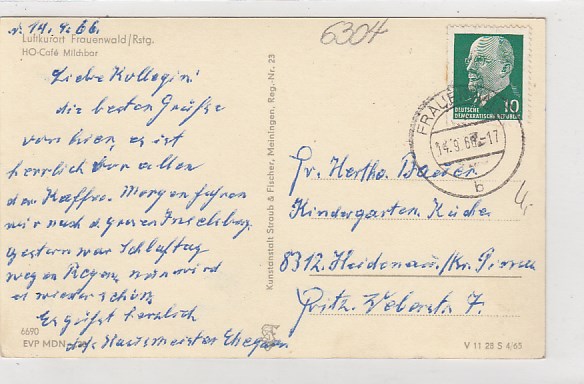 d. 14. 9. 66.
Luftkurort Frauenwald/Rstg.
HO-Café Milchbar
Liebe Kollegin!
die besten Grüße
von hier, es ist
herrlich vor allen
der Kaffee. Morgen fahren
wir nach d. großen Inselsberg.
Gestern war Schlaftag
wegen Regen, nun wird
es wieder schön
Es grüßt herzlich
das Hausmeister Ehepaar
6690
EVP MDN
Kunstanstalt Straub & Fischer, Meiningen, Reg.-Nr. 23
6304
10
DEUTSCHE
DEMOKRATISCHE REPUBLIK
14.9.66-17
b
Fr. Hertha
Kindergarten Küche
8312 Heidenau/Kr. Pirna
Fritz Weber Str. 7.
V 11 28 S 4/65